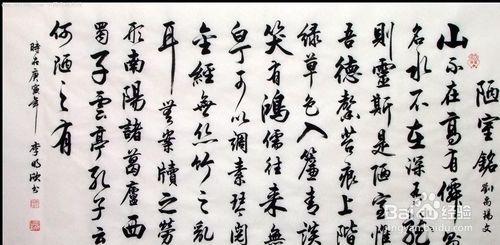 陋室銘
劉禹锡文
山不在高有僊則
名水不在深有龍
則靈斯是陋室惟
吾德馨苔痕上階
綠草色入簾青談
笑有鴻儒往來無
白丁可以調素琴閱
金經無絲竹之亂
耳無案牘之勞
形南陽諸葛廬西
蜀子雲亭孔子云
何陋之有
時在庚寅年 李明 书
Bai 经验